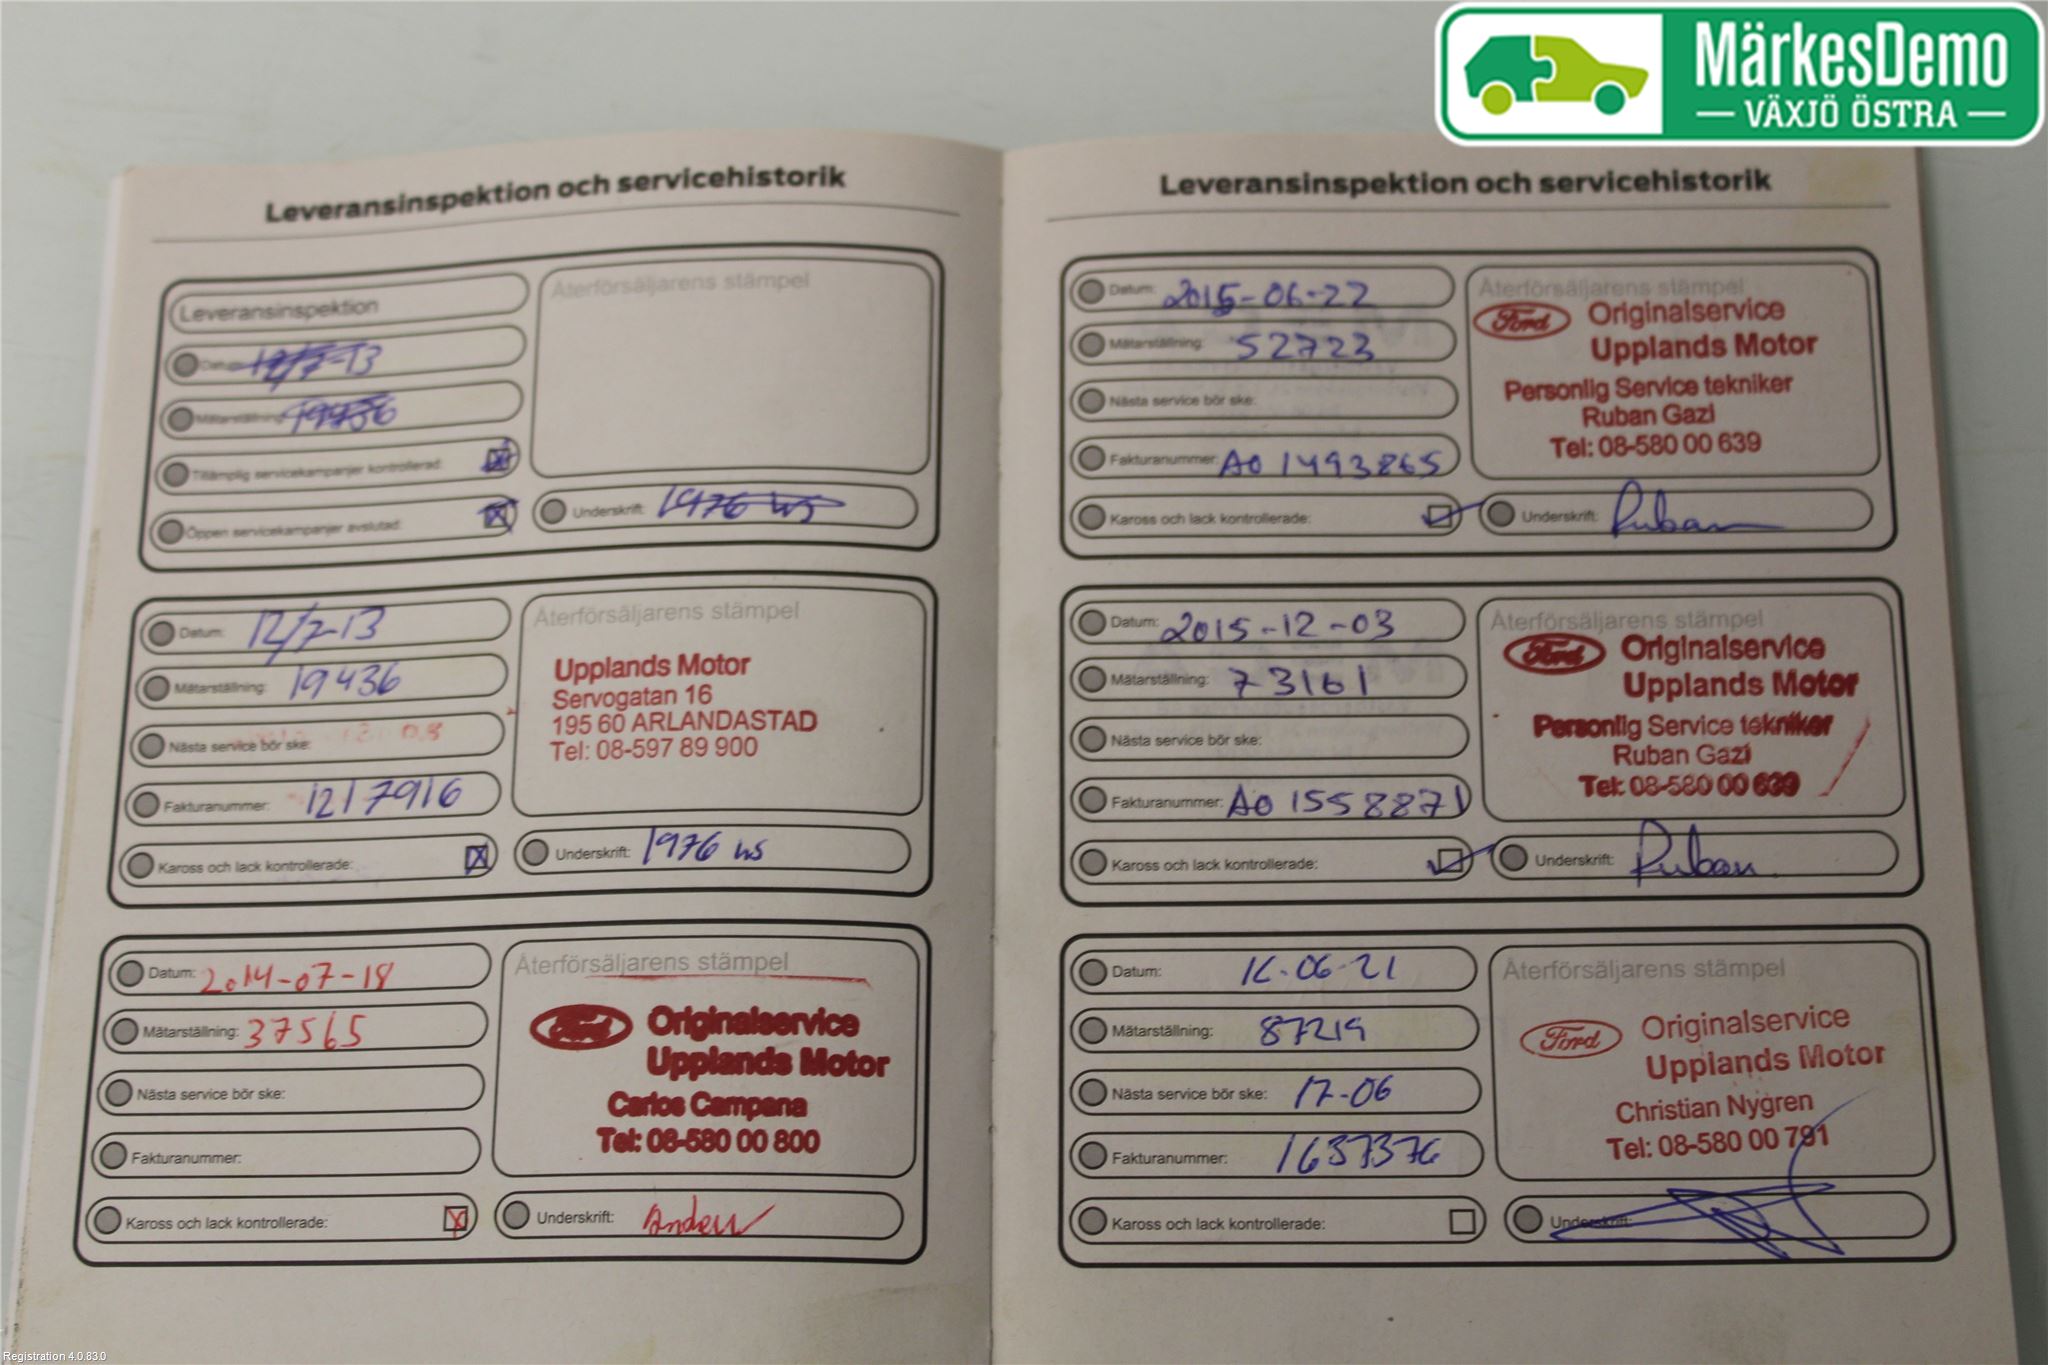 MärkesDemo
VÄXJÖ ÖSTRA
Leveransinspektion och servicehistorik
Leveransinspektion
Datum: 12/7-13
Mätarställning: 19436
Tillämplig servicekampanjer kontrollerad:
Öppen servicekampanjer avslutad:
Återförsäljarens stämpel
Underskrift: 1976 ws
Datum: 12/7-13
Mätarställning: 19436
Nästa service bör ske:
Fakturanummer: 1217916
Kaross och lack kontrollerade: X
Återförsäljarens stämpel
Upplands Motor
Servogatan 16
195 60 ARLANDASTAD
Tel: 08-597 89 900
Underskrift: 1976 ws
Datum: 2014-07-18
Mätarställning: 37565
Nästa service bör ske:
Fakturanummer:
Kaross och lack kontrollerade: X
Återförsäljarens stämpel
Ford Originalservice
Upplands Motor
Carlos Campana
Tel: 08-580 00 800
Underskrift:
Leveransinspektion och servicehistorik
Datum: 2015-06-22
Mätarställning: 52723
Nästa service bör ske:
Fakturanummer: A0 1493865
Kaross och lack kontrollerade:
Återförsäljarens stämpel
Ford Originalservice
Upplands Motor
Personlig Service tekniker
Ruban Gazi
Tel: 08-580 00 639
Underskrift: Ruban
Datum: 2015-12-03
Mätarställning: 73161
Nästa service bör ske:
Fakturanummer: A0 1558871
Kaross och lack kontrollerade:
Återförsäljarens stämpel
Ford Originalservice
Upplands Motor
Personlig Service tekniker
Ruban Gazi
Tel: 08-580 00 639
Underskrift: Ruban
Datum: 16-06-21
Mätarställning: 87219
Nästa service bör ske: 17-06
Fakturanummer: 1637376
Kaross och lack kontrollerade:
Återförsäljarens stämpel
Ford Originalservice
Upplands Motor
Christian Nygren
Tel: 08-580 00 791
Underskrift:
Registration 4.0.83.0